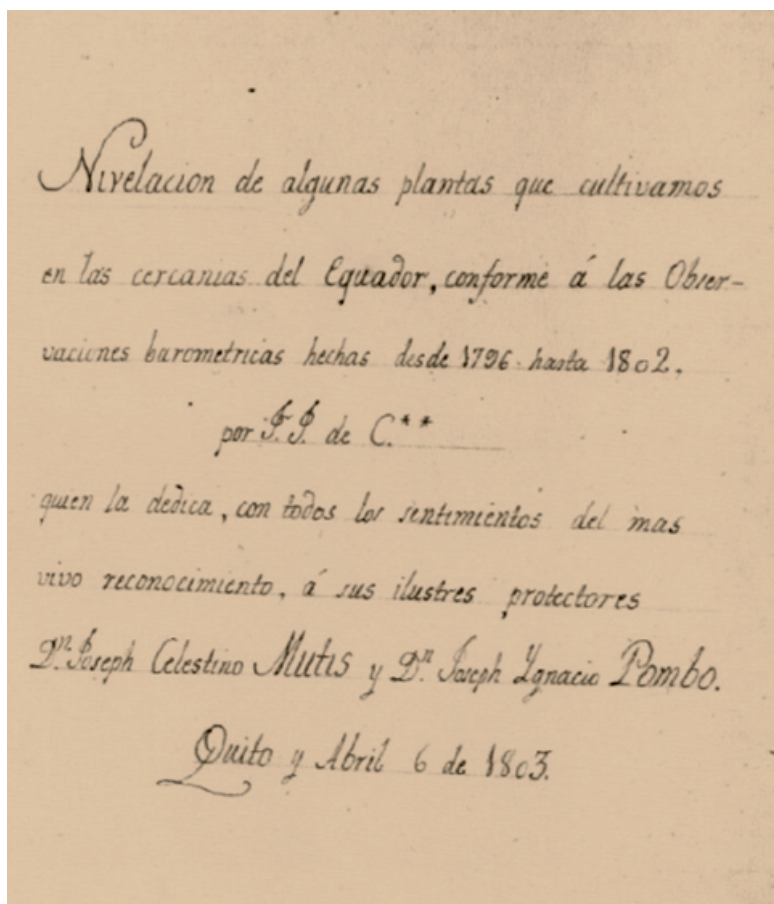 Nivelacion de algunas plantas que cultivamos
en las cercanias del Equador, conforme á las Obser-
vaciones barometricas hechas desde 1796 hasta 1802.
por F. J. de C.**
quien la dedica, con todos los sentimientos del mas
vivo reconocimiento, á sus ilustres protectores
Dⁿ. Joseph Celestino Mutis y Dⁿ. Joseph Ygnacio Pombo.
Quito y Abril 6 de 1803.